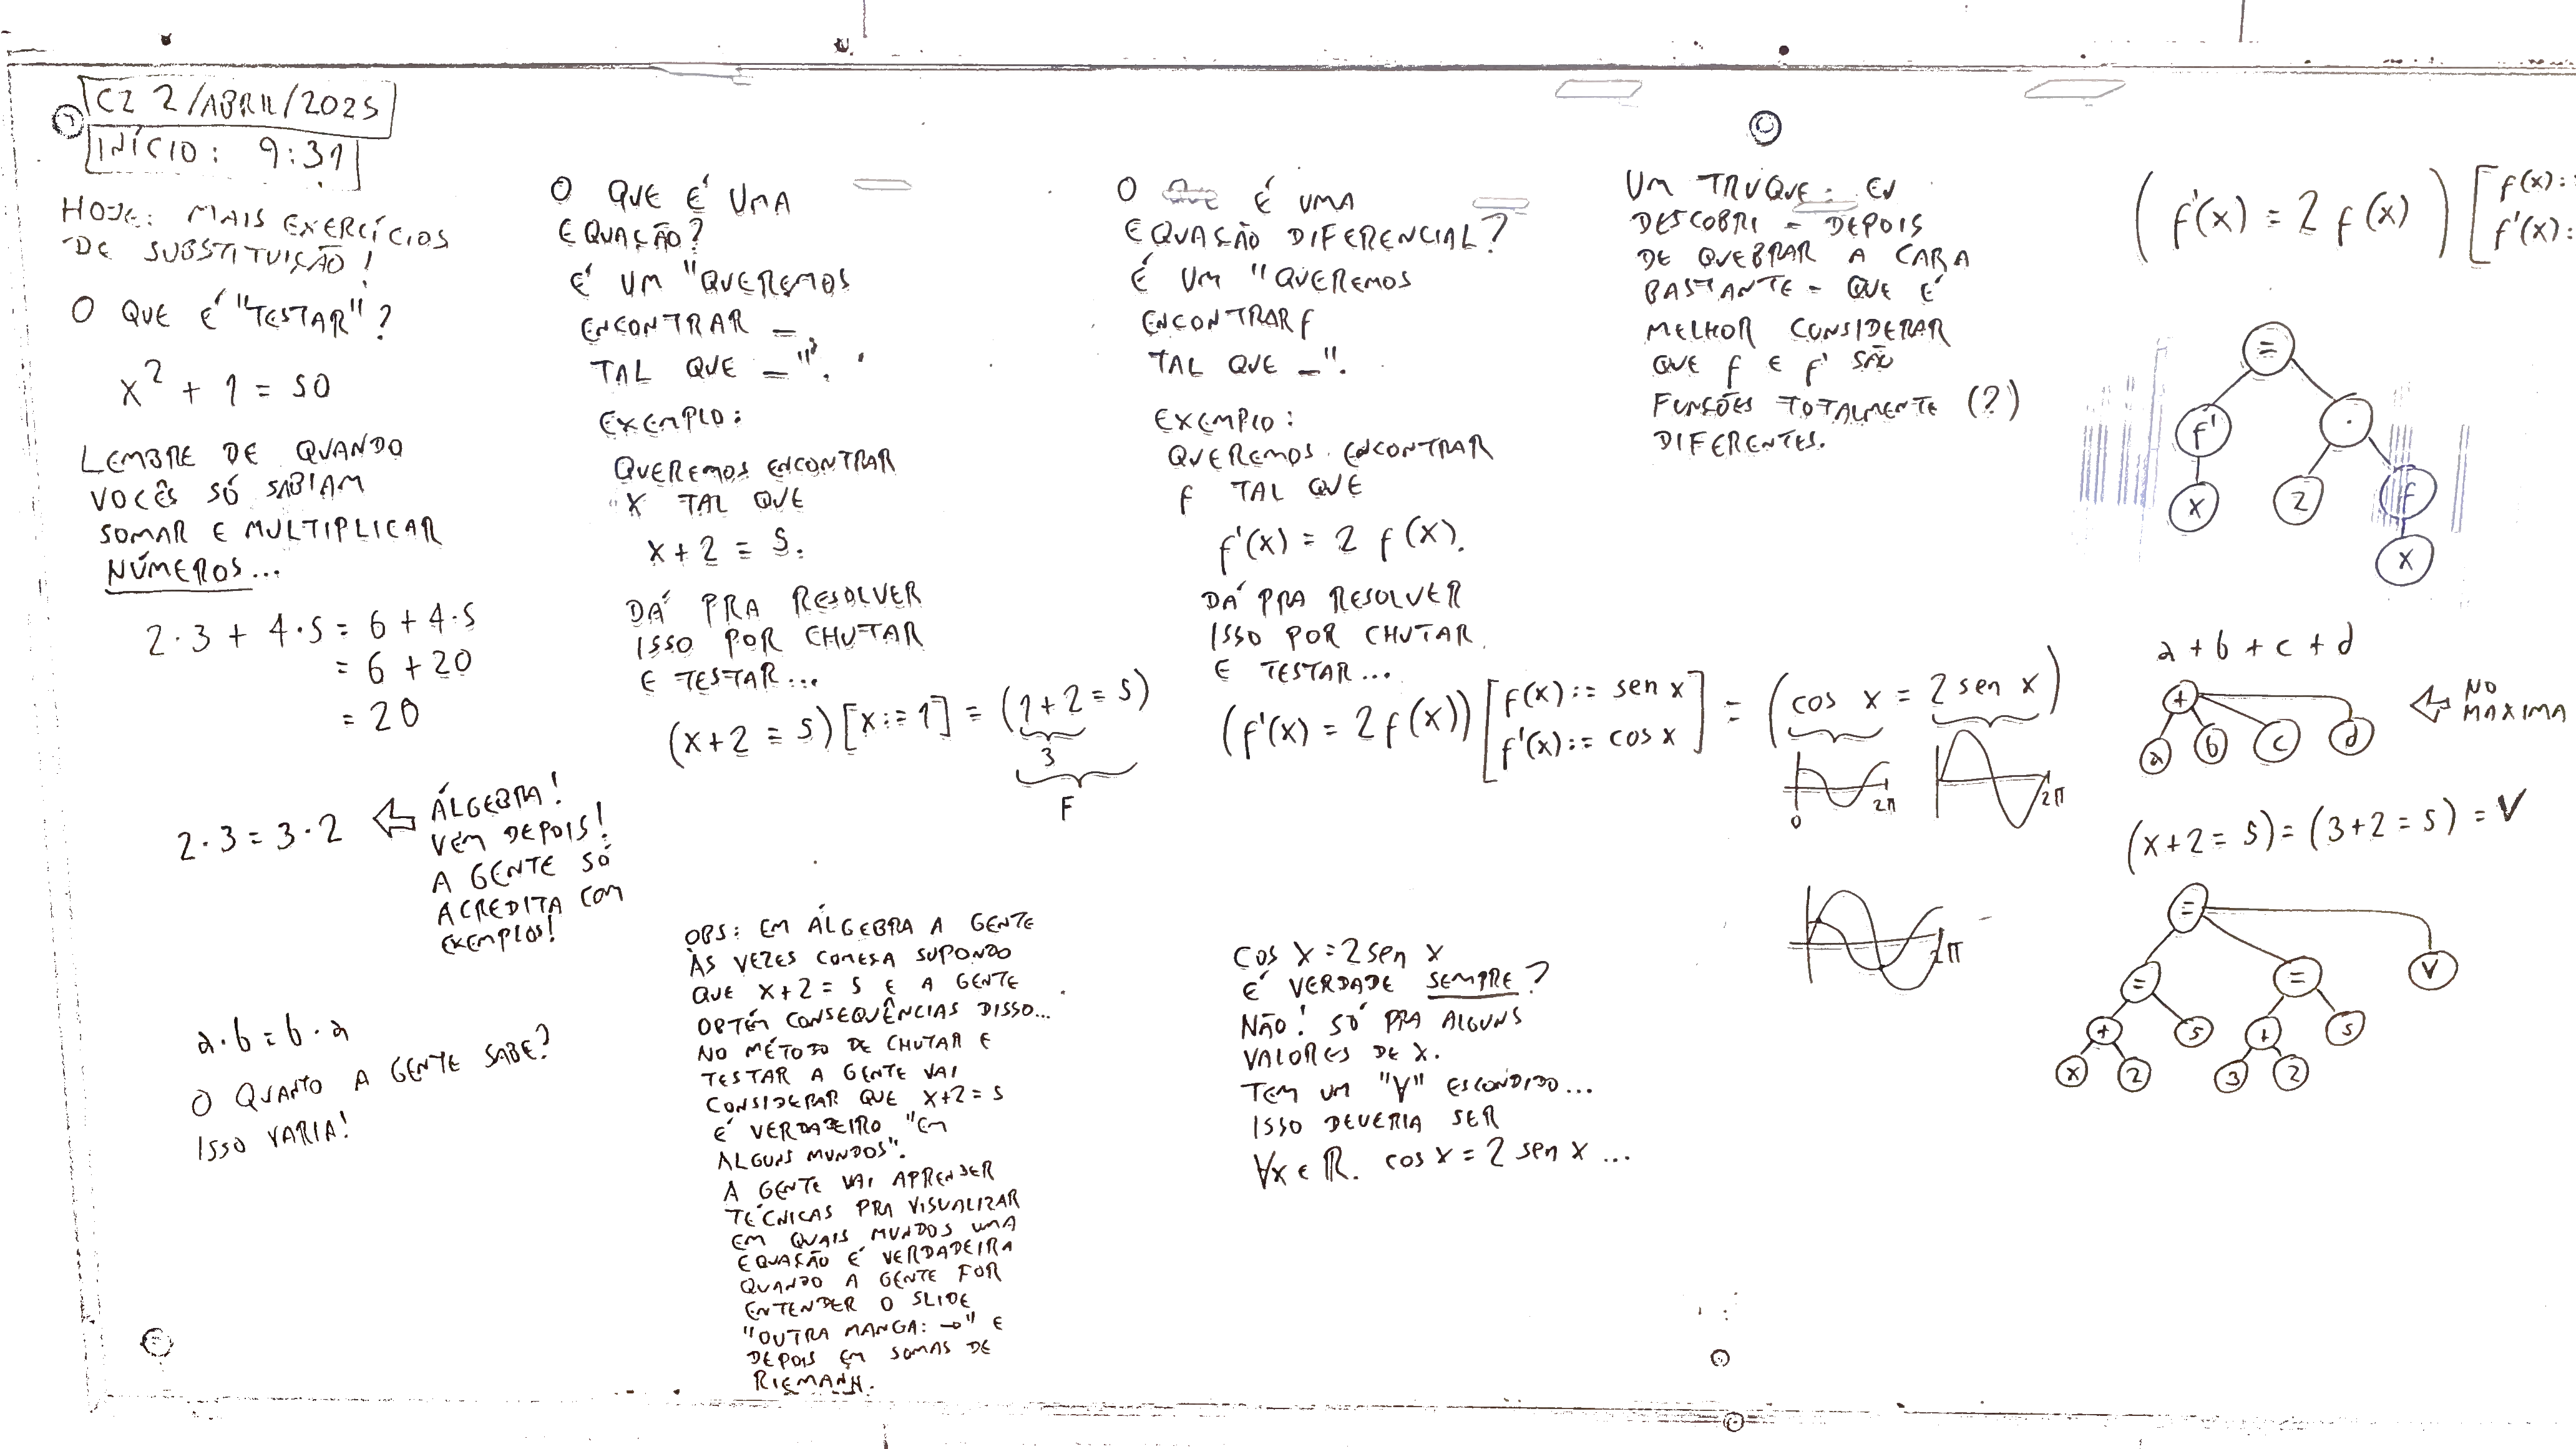 C2 2/ABRIL/2025
INÍCIO: 9:31
HOJE: MAIS EXERCÍCIOS
DE SUBSTITUIÇÃO!
O QUE É "TESTAR"?
x² + 1 = 50
LEMBRE DE QUANDO
VOCÊS SÓ SABIAM
SOMAR E MULTIPLICAR
NÚMEROS...
2·3 + 4·5 = 6 + 4·5
= 6 + 20
= 20
2·3 = 3·2
ÁLGEBRA!
VEM DEPOIS!
A GENTE SÓ
ACREDITA COM
EXEMPLOS!
a·b = b·a
O QUANTO A GENTE SABE?
ISSO VARIA!
O QUE É UMA
EQUAÇÃO?
É UM "QUEREMOS
ENCONTRAR _
TAL QUE _".
EXEMPLO:
QUEREMOS ENCONTRAR
X TAL QUE
x + 2 = 5.
DÁ PRA RESOLVER
ISSO POR CHUTAR
E TESTAR...
(x+2 = 5)[x := 1] = (1+2 = 5)
3
F
OBS: EM ÁLGEBRA A GENTE
ÀS VEZES COMEÇA SUPONDO
QUE x+2 = 5 E A GENTE
OBTÉM CONSEQUÊNCIAS DISSO...
NO MÉTODO DE CHUTAR E
TESTAR A GENTE VAI
CONSIDERAR QUE x+2 = 5
É VERDADEIRO "EM
ALGUNS MUNDOS".
A GENTE VAI APRENDER
TÉCNICAS PRA VISUALIZAR
EM QUAIS MUNDOS UMA
EQUAÇÃO É VERDADEIRA
QUANDO A GENTE FOR
ENTENDER O SLIDE
"OUTRA MANGA: →" E
DEPOIS EM SOMAS DE
RIEMANN.
O QUE É UMA
EQUAÇÃO DIFERENCIAL?
É UM "QUEREMOS
ENCONTRAR f
TAL QUE _".
EXEMPLO:
QUEREMOS ENCONTRAR
f TAL QUE
f'(x) = 2 f(x).
DÁ PRA RESOLVER
ISSO POR CHUTAR
E TESTAR...
(f'(x) = 2 f(x)) [f(x) := sen x
f'(x) := cos x] = (cos x = 2 sen x)
0 2π
2π
2π
COS X = 2 sen X
É VERDADE SEMPRE?
NÃO! SÓ PRA ALGUNS
VALORES DE X.
TEM UM "∀" ESCONDIDO...
ISSO DEVERIA SER
∀x ∈ ℝ. cos x = 2 sen x ...
UM TRUQUE: EU
DESCOBRI - DEPOIS
DE QUEBRAR A CARA
BASTANTE - QUE É
MELHOR CONSIDERAR
QUE f E f' SÃO
FUNÇÕES TOTALMENTE (?)
DIFERENTES.
(f'(x) = 2 f(x)) [f(x):
f'(x):
=
f' ·
x 2 f
x
a + b + c + d
+
a b c d
NO
MAXIMA
(x+2 = 5) = (3+2 = 5) = V
=
= = V
+ 5 + 5
x 2 3 2